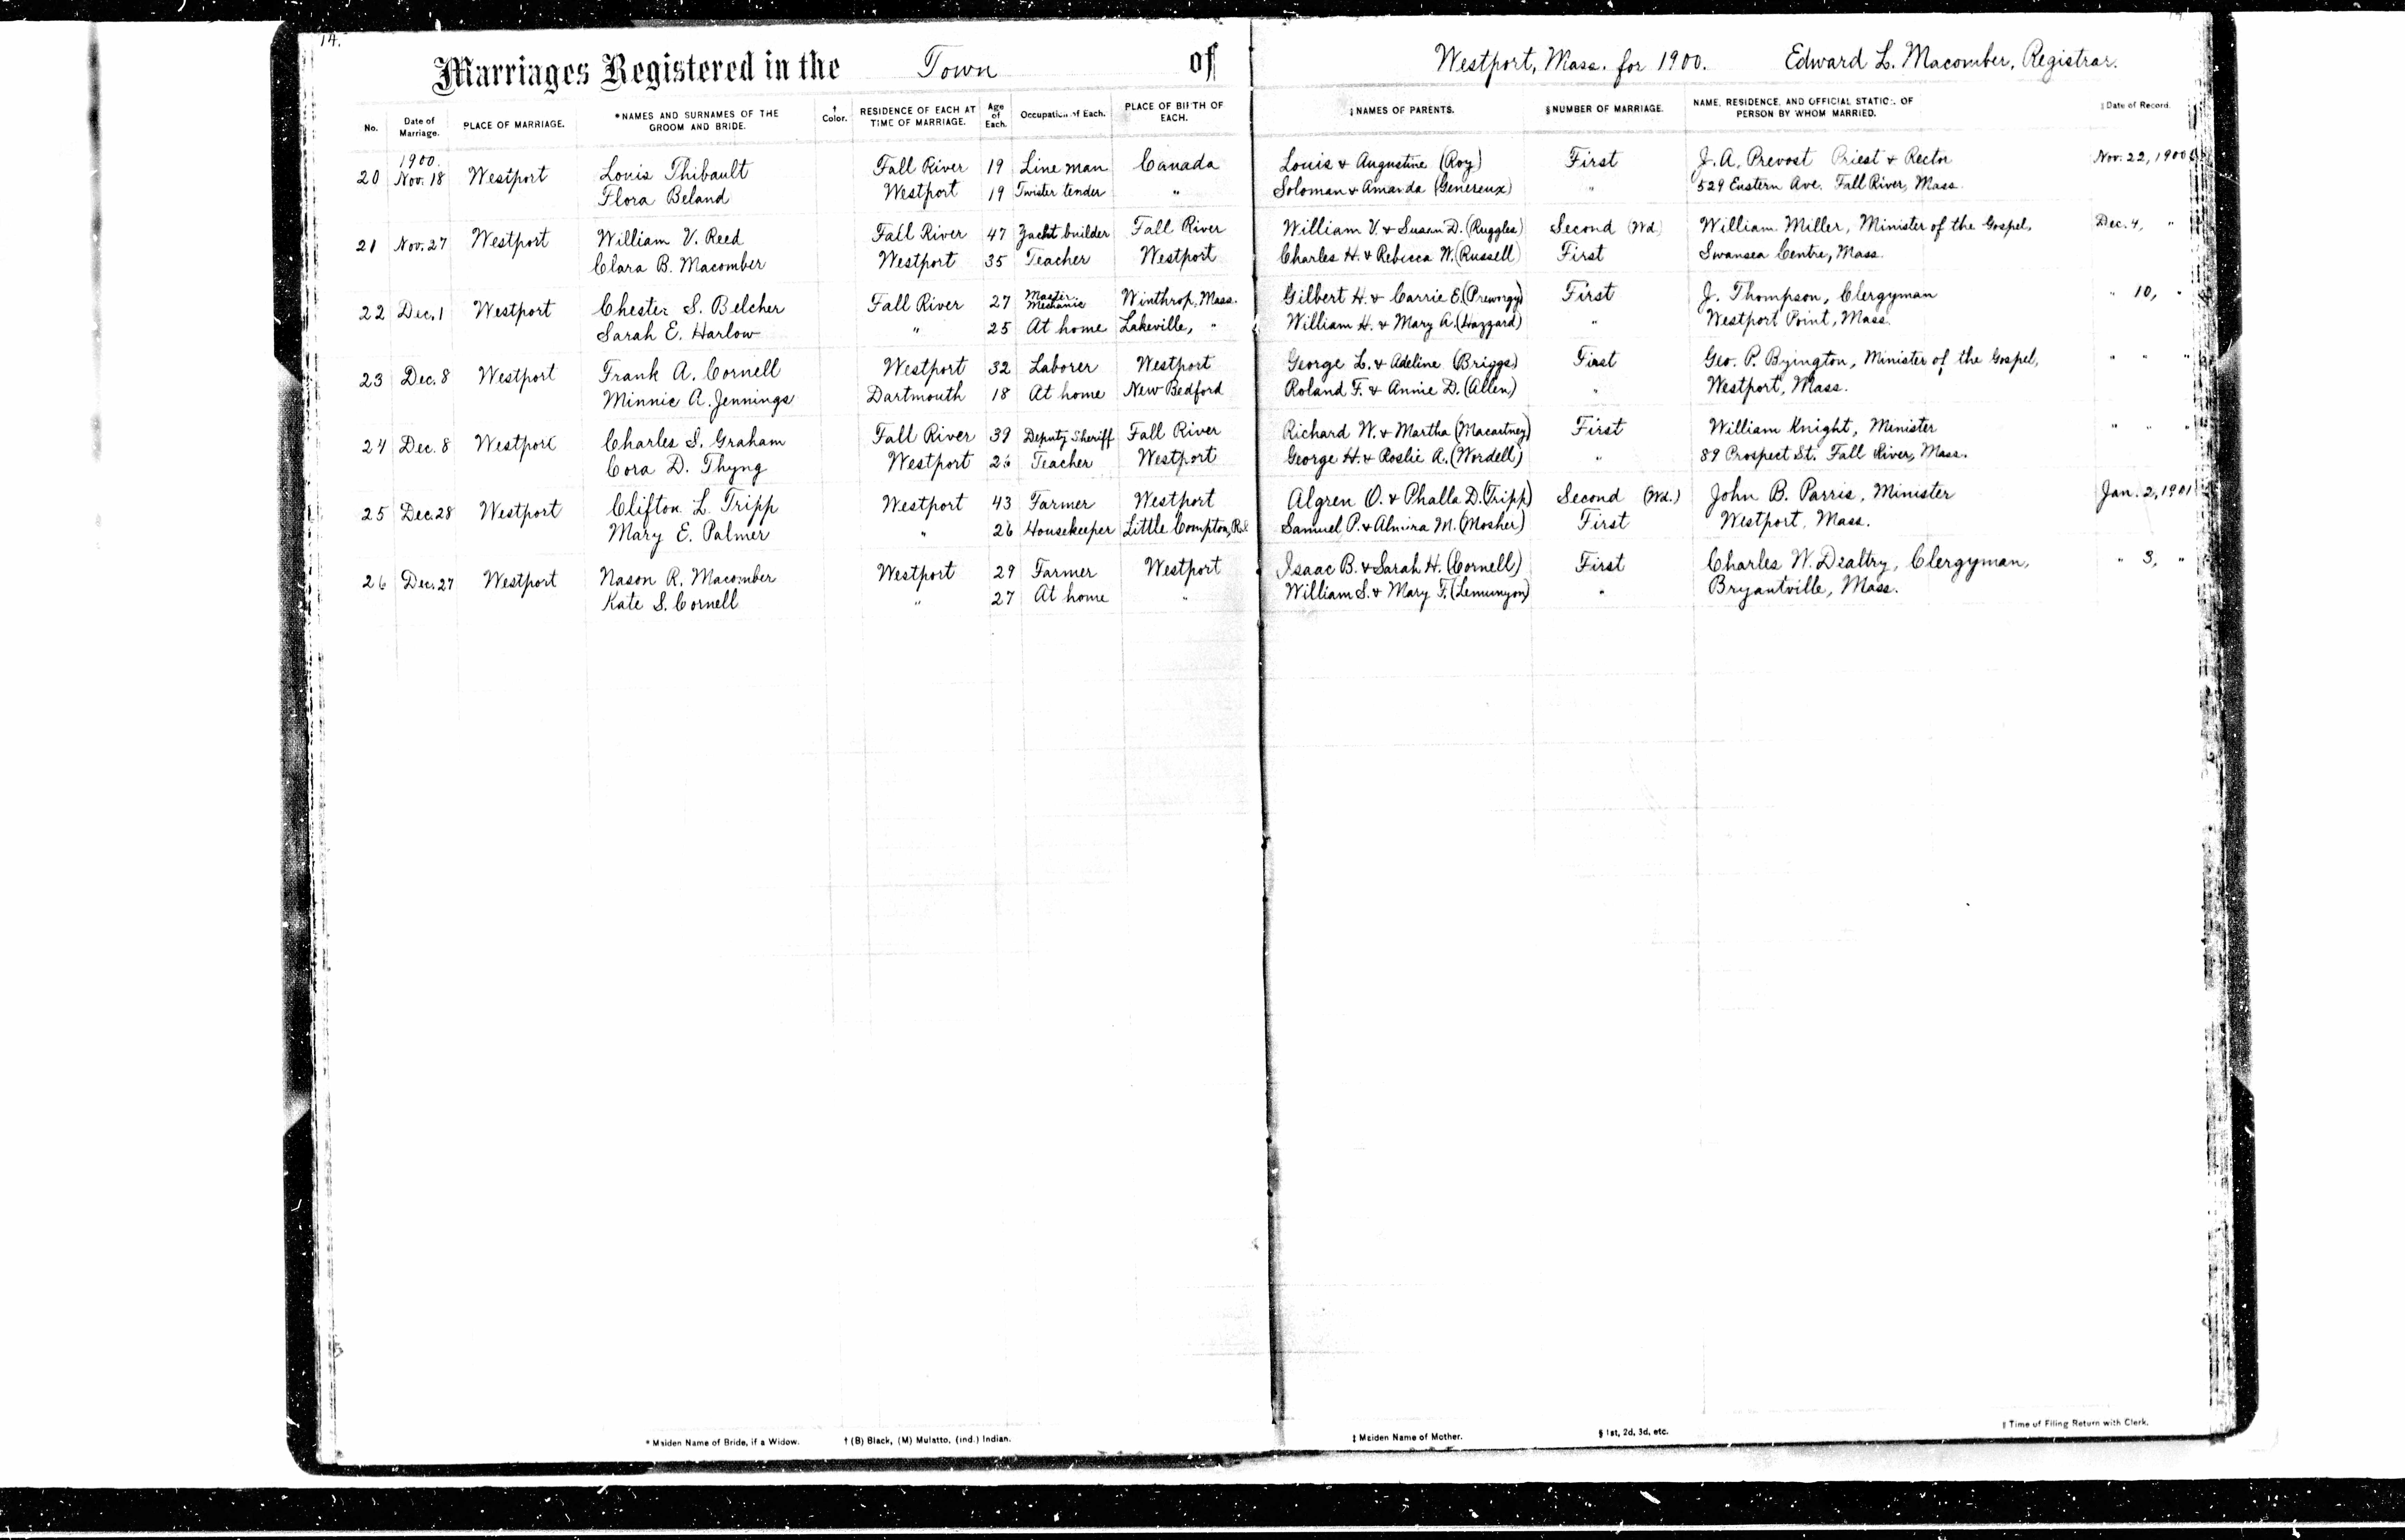 14.
Marriages Registered in the Town of Westport, Mass. for 1900. Edward L. Macomber, Registrar.
No. Date of Marriage. PLACE OF MARRIAGE. *NAMES AND SURNAMES OF THE GROOM AND BRIDE. † Color. RESIDENCE OF EACH AT TIME OF MARRIAGE. Age of Each. Occupation of Each. PLACE OF BIRTH OF EACH. ‡NAMES OF PARENTS. §NUMBER OF MARRIAGE. NAME, RESIDENCE, AND OFFICIAL STATION OF PERSON BY WHOM MARRIED. ‖Date of Record.
1900.
20 Nov. 18 Westport Louis Thibault Fall River 19 Line man Canada Louis & Augustine (Roy) First J. A. Prevost Priest & Rector Nov. 22, 1900
Flora Beland Westport 19 Twister tender " Soloman & Amanda (Genereux) " 529 Eastern Ave. Fall River, Mass.
21 Nov. 27 Westport William V. Reed Fall River 47 Yacht builder Fall River William V. & Susan D. (Ruggles) Second (Wd.) William Miller, Minister of the Gospel, Dec. 4, "
Clara B. Macomber Westport 35 Teacher Westport Charles H. & Rebecca W. (Russell) First Swansea Centre, Mass.
22 Dec. 1 Westport Chester S. Belcher Fall River 27 Master Mechanic Winthrop, Mass. Gilbert H. & Carrie E. First J. Thompson, Clergyman " 10, "
Sarah E. Harlow " 25 At home Lakeville, " William H. & Mary A. (Hazzard) " Westport Point, Mass.
23 Dec. 8 Westport Frank A. Cornell Westport 32 Laborer Westport George L. & Adeline (Briggs) First Geo. P. Byington, Minister of the Gospel, " " "
Minnie A. Jennings Dartmouth 18 At home New Bedford Roland F. & Annie D. (Allen) " Westport, Mass.
24 Dec. 8 Westport Charles S. Graham Fall River 39 Deputy Sheriff Fall River Richard W. & Martha (Macartney) First William Knight, Minister " " "
Cora D. Thyng Westport 26 Teacher Westport George H. & Roslie A. (Wordell) " 89 Prospect St. Fall River, Mass.
25 Dec. 28 Westport Clifton L. Tripp Westport 43 Farmer Westport Algren O. & Phalla D. (Tripp) Second (Wd.) John B. Parris, Minister Jan. 2, 1901
Mary E. Palmer " 26 Housekeeper Little Compton, R.I. Samuel P. & Almira M. (Mosher) First Westport, Mass.
26 Dec. 27 Westport Nason R. Macomber Westport 29 Farmer Westport Isaac B. & Sarah H. (Cornell) First Charles W. Dealtry, Clergyman, " 3, "
Kate S. Cornell " 27 At home " William S. & Mary F. (Lemunyon) " Bryantville, Mass.
* Maiden Name of Bride, if a Widow. † (B) Black, (M) Mulatto, (ind.) Indian. ‡ Maiden Name of Mother. § 1st, 2d, 3d, etc. ‖ Time of Filing Return with Clerk.